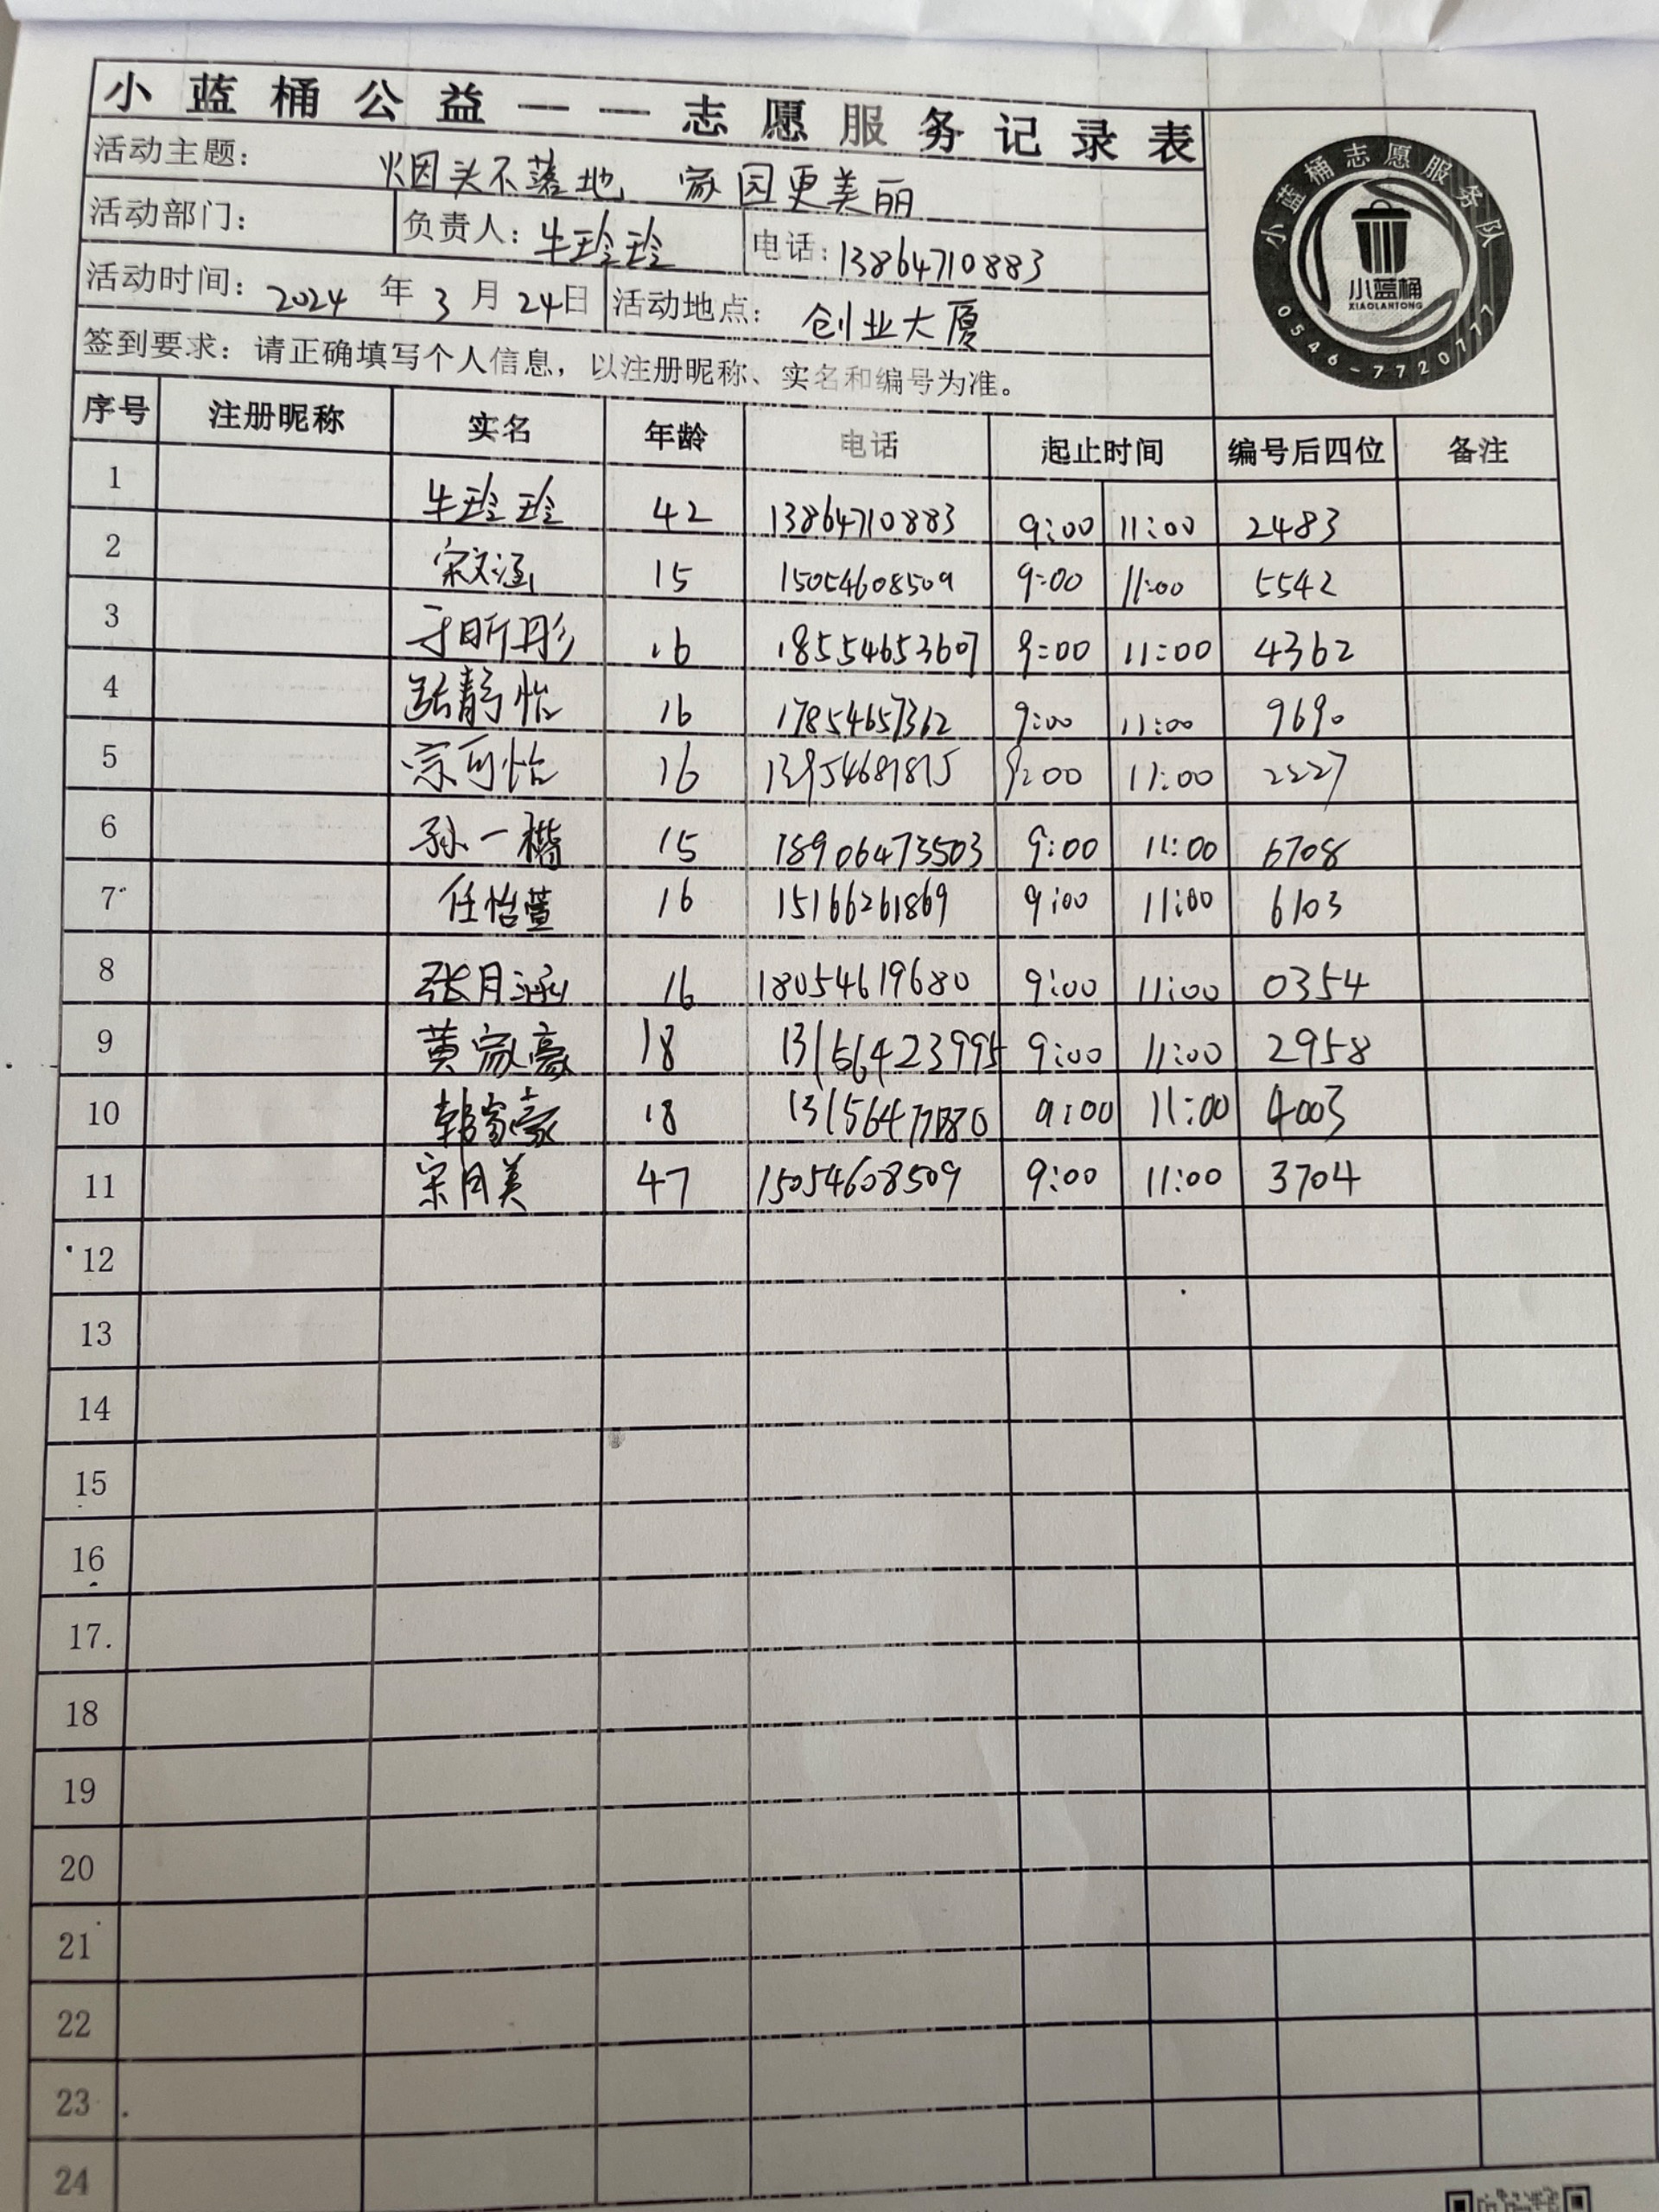 小蓝桶公益——志愿服务记录表
活动主题： 烟头不落地 家园更美丽
活动部门： 负责人：牛玲玲 电话：13864710883
活动时间：2024 年 3 月 24日 活动地点：创业大厦
签到要求：请正确填写个人信息，以注册昵称、实名和编号为准。
小蓝桶志愿服务队
小蓝桶
XIAOLANTONG
0546-7720777
序号 注册昵称 实名 年龄 电话 起止时间 编号后四位 备注
1 牛玲玲 42 13864710883 9:00 11:00 2483
2 宋文涵 15 15054608509 9:00 11:00 5542
3 于昕彤 16 18554653607 9:00 11:00 4362
4 张静怡 16 17854657362 9:00 11:00 9690
5 宗可怡 16 9:00 11:00 2227
6 孙一楷 15 18906473503 9:00 11:00 6708
7 任怡萱 16 15166261869 9:00 11:00 6103
8 张月涵 16 18054619680 9:00 11:00 0354
9 黄家豪 18 13156423995 9:00 11:00 2958
10 韩富豪 18 9:00 11:00 4003
11 宋月美 47 15054608509 9:00 11:00 3704
12
13
14
15
16
17
18
19
20
21
22
23
24